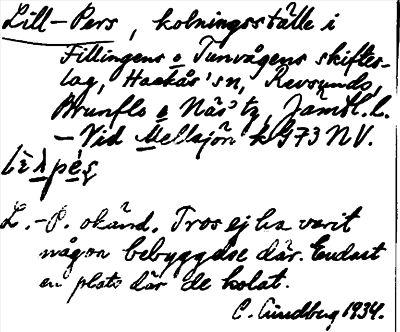 Lill-Pers, kolningsställe i
Fillingens o Tunvågens skiftes-
lag, Hackås' sn, Revsunds,
Brunflo o Näs' tg, Jämtl. l.
- Vid Mellsjön k G73 NV.
L.-P. okänd. Tros ej ha varit
någon bebyggelse där. Endast
en plats där de kolat.
C. Lindberg 1934.